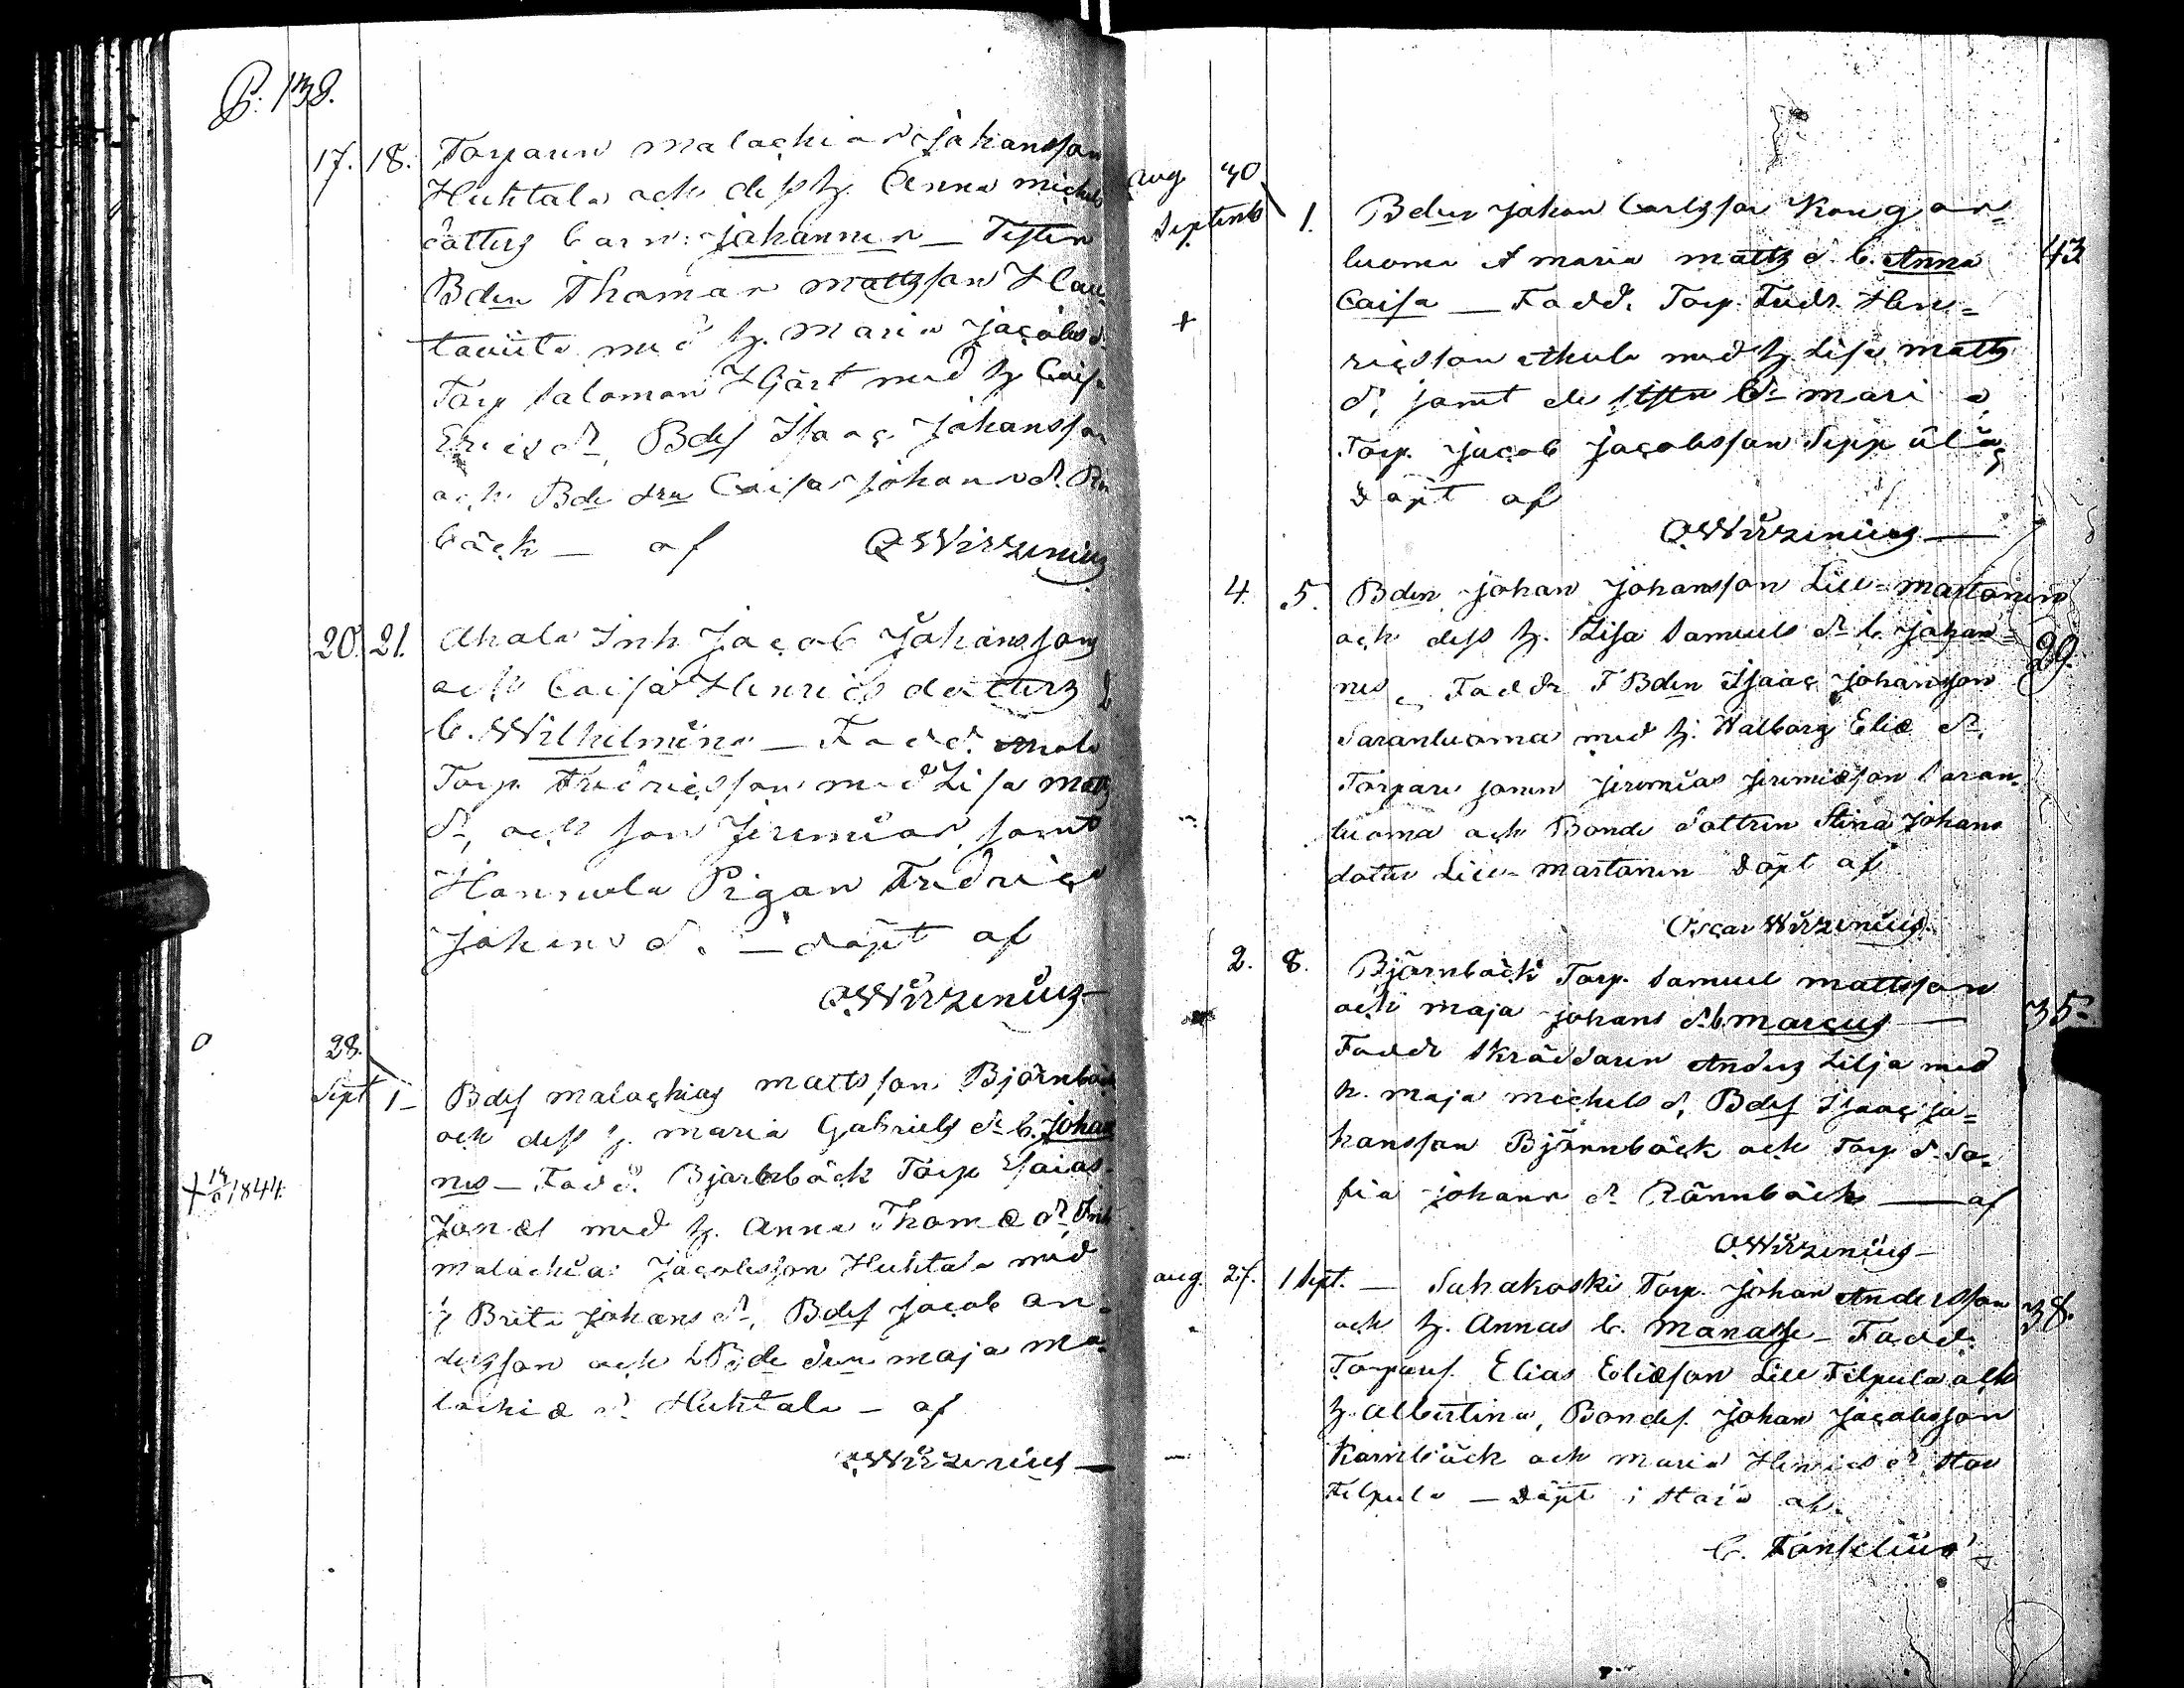 P. 138.
17. 18. Torparen Malachias Johansson
Huhtala och dess h. Anna Michels
dotters barn: Johannes — Testen
Bden Thomas Mattsson Hau-
taviita med h. Maria Jacobs d.
Torp Salomon Hjärt med h Caisa
Erics dr, Bdes Isaac Johansson
och Bde drn Caisa Johans d. Rön
bäck — af O Wirzenius
20. 21. Ahola Inh Jacob Johansson
och Caisa Henrics dotters
b. Wilhelmina — Fadd.
Torp. Fredricsson med Lisa Matts
dr, och son Jeremias, samt
Hannula Pigan Fredrica
Johans d. — döpt af
O Wirzenius
28.
Sept 1 Bdes Malachias Mattsson Björnbäck
och dess h. Maria Gabriels dr b. Johan
nes — Fadd. Björnbäck Torp Esaias
Jonæs med h. Anna Thomæ dr, Inh
Malachias Jacobsson Huhtala med
h Brita Johans dr, Bdes Jacob An-
dersson och Bde drn Maja Ma-
lachiæ d. Huhtala — af
+ 1844.
O Wirzenius —
Aug 30
Septemb 1. Bden Johan Carlsson Kangas-
luoma & Maria Matts d. b. Anna 43
Caisa — Fadd. Torp. Fredr. Hen-
ricsson Ahola med h. Lisa Matts
d. samt
Torp. Jacob Jacobsson
döpt af
O Wirzenius —
4. 5. Bden Johan Johansson Lill-Martonen
och dess h. Lisa Samuels dr b. Johan- 29.
nes, Faddr F Bden Isaac Johansson
Saranluoma med h. Walborg Eliæ dr,
Torpare sonen Jeremias Jeremiæson Saran-
luoma och Bonde dottren Stina Johans
dotter Lill-Martonen döpt af
Oscar Wirzenius.
2. 8. Björnbäck Torp. Samuel Mattsson
och Maja Johans d. b. Marcus — 35.
Faddr Skräddaren Anders Lilja med
h. Maja Michels d, Bdes Isaac Jo-
hansson Björnbäck och Torp d. So-
fia Johans dr Rönnbäck — af
O Wirzenius —
Aug. 27. 1 Sept. — Sahakoski Torp. Johan Andersson 38.
och h. Annas b. Manasse — Fadd.
Torpares. Elias Eliæson Lill Filpula och
h. Albertina, Bondes. Johan Jacobsson
Karnbäck och Maria Henrics dr, Stor
Filpula — döpt i af
C. Forselius